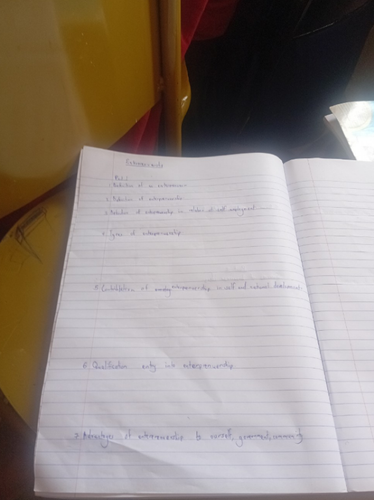 Entrepreneurship
1. Definition of an entrepreneur
2. Definition of entrepreneurship
3. Definition of entrepreneurship in relation to self employment
4. Types of entrepreneurship
5. Contribution of entrepreneurship in self and national development
6. Qualification entry into entrepreneurship
7. Advantages of entrepreneurship to oneself, government, community